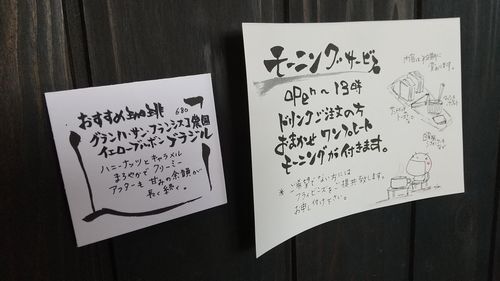 おすすめ珈琲
680
グランハ・サンフランシスコ農園
イエローブルボン ブラジル
ハニーナッツとキャラメル
まろやかで クリーミー
アフターも 甘みの余韻が
長く続く。
モーニングサービス
open〜13時
ドリンクご注文の方
おまかせ ワンプレート
モーニングが付きます。
* ご希望でない方には
フライビーンズをご提供致します。
お申し付け下さい。
内容は定期的に
変わります。